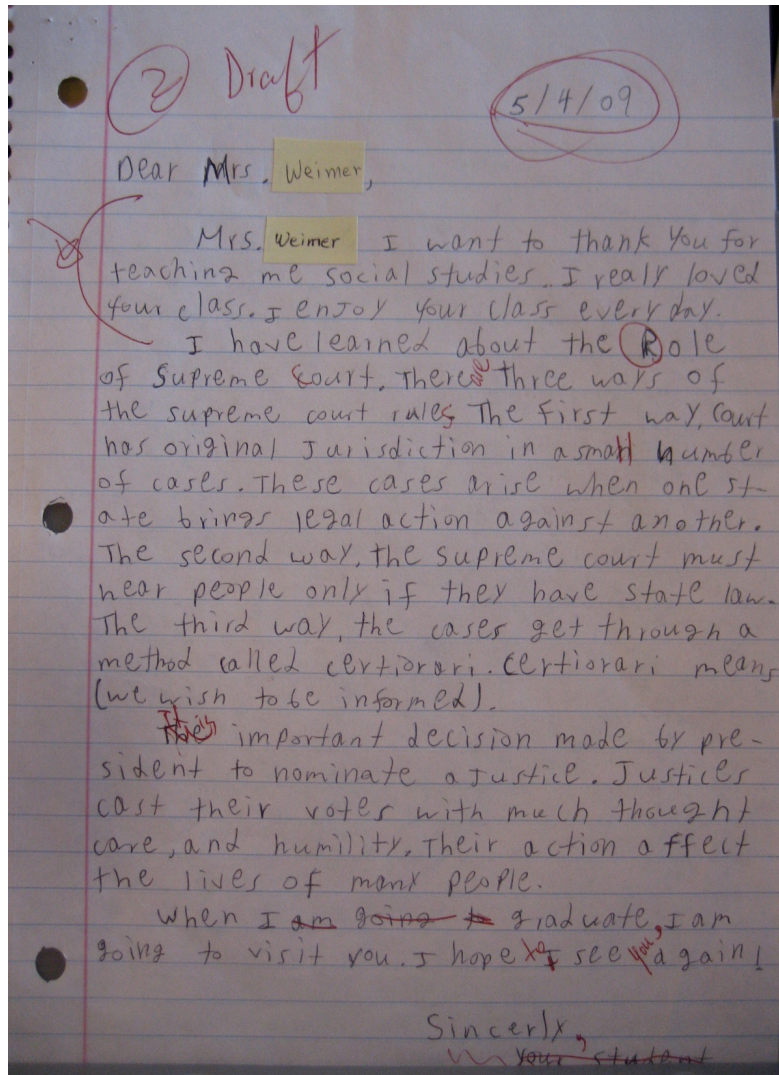 2 Draft
5/4/09
Dear Mrs. Weimer,
Mrs. Weimer I want to thank you for
teaching me social studies. I realy loved
your class. I enjoy your class every day.
I have learned about the Role
of Supreme Court. There are three ways of
the supreme court rules The first way, Court
has original Jurisdiction in a small number
of cases. These cases arise when one st-
ate brings legal action against another.
The second way, the supreme court must
hear people only if they have state law.
The third way, the cases get through a
method called certiorari. Certiorari means
(we wish to be informed).
It is important decision made by pre-
sident to nominate a Justice. Justices
cast their votes with much thought
care, and humility. Their action affect
the lives of many people.
When I am going to graduate, I am
going to visit you. I hope to see you again!
Sincerly,
your student